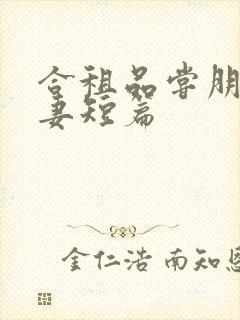 合租品尝朋
妻短篇
金仁浩 南知恩